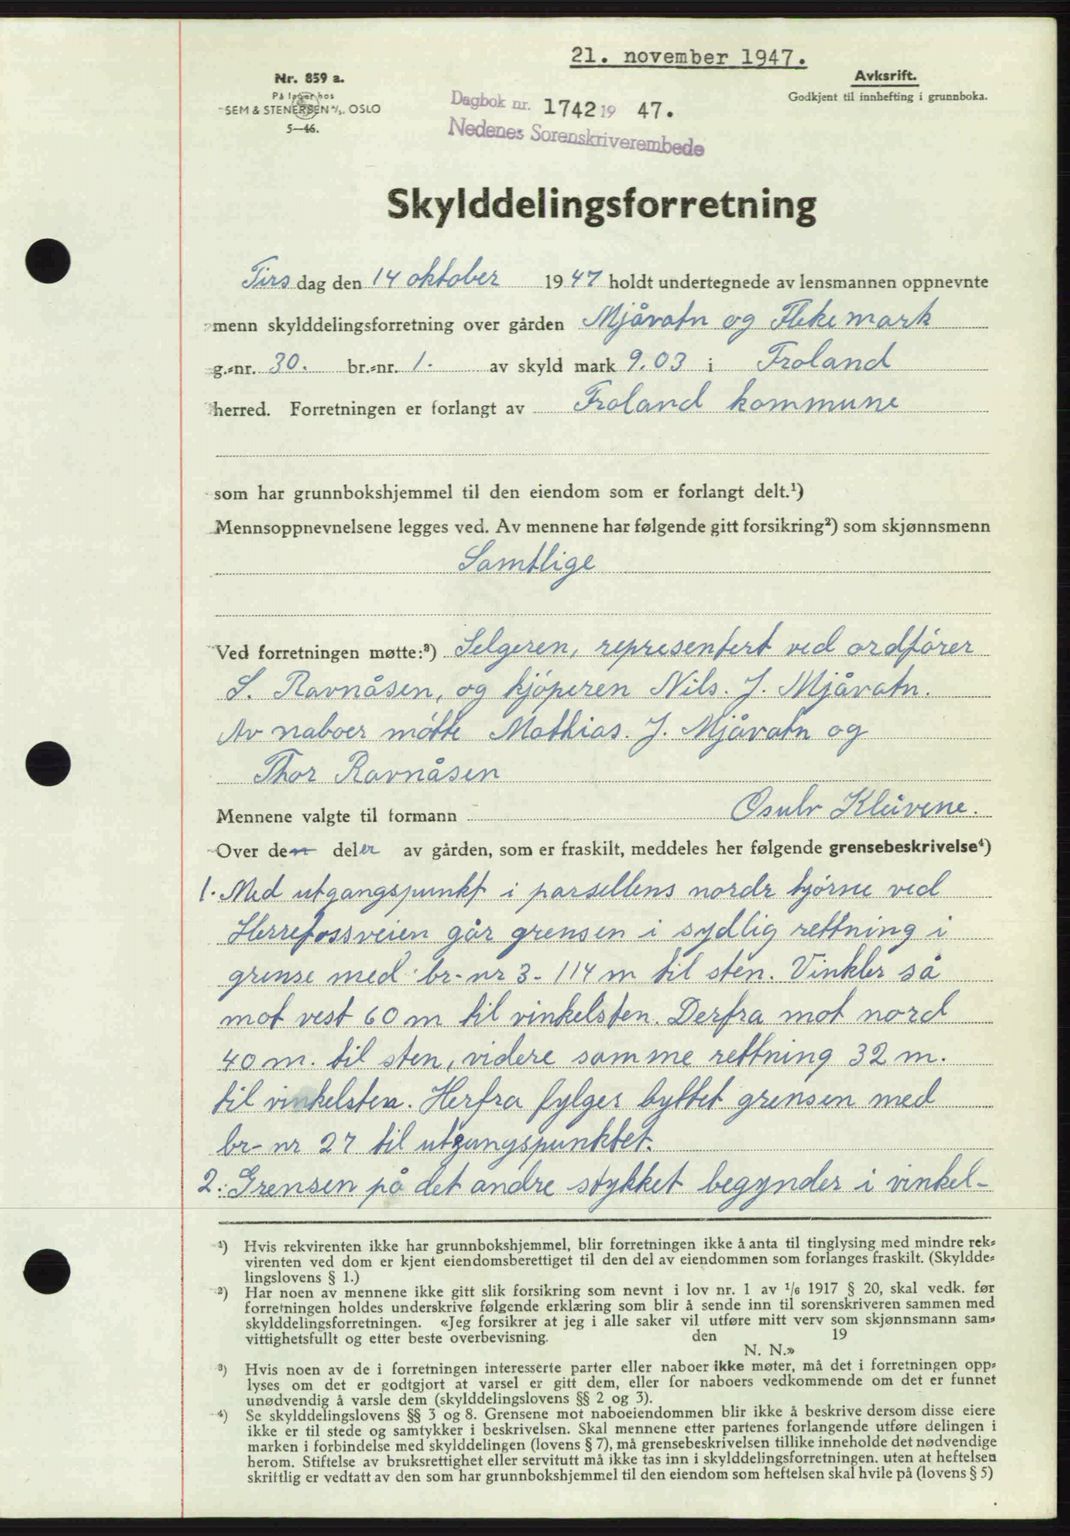 21. november 1947.
Nr. 859 a.
På lager hos
SEM & STENERSEN A/S. OSLO
5—46.
Avksrift.
Godkjent til innhefting i grunnboka.
Dagbok nr. 1742 19 47.
Nedenes Sorenskriverembede
Skylddelingsforretning
Tirsdag den 14 oktober 1947 holdt undertegnede av lensmannen oppnevnte
menn skylddelingsforretning over gården Mjåvatn og Flekemark
g.-nr. 30. br.-nr. 1. av skyld mark 9.03 i Froland
herred. Forretningen er forlangt av Froland kommune
som har grunnbokshjemmel til den eiendom som er forlangt delt.¹)
Mennsoppnevnelsene legges ved. Av mennene har følgende gitt forsikring²) som skjønnsmenn
Samtlige
Ved forretningen møtte:³) Selgeren, representert ved ordfører
S. Ravnåsen, og kjøperen Nils. J. Mjåvatn.
Av naboer møtte Mathias. J. Mjåvatn og
Thor Ravnåsen
Mennene valgte til formann Osulv Kleivene.
Over den deler av gården, som er fraskilt, meddeles her følgende grensebeskrivelse⁴)
1. Med utgangspunkt i parsellens nordr hjørne ved
Herrefossveien går grensen i sydlig rettning i
grense med br-nr 3- 114 m til sten. Vinkler så
mot vest 60 m til vinkelsten. Derfra mot nord
40 m. til sten, videre samme rettning 32 m.
til vinkelsten. Herfra fylger byttet grensen med
br- nr 27 til utgangspunktet.
2. Grensen på det andre stykket begynder i vinkel-
¹) Hvis rekvirenten ikke har grunnbokshjemmel, blir forretningen ikke å anta til tinglysing med mindre rek-
virenten ved dom er kjent eiendomsberettiget til den del av eiendommen som forlanges fraskilt. (Skyldde-
lingslovens § 1.)
²) Har noen av mennene ikke gitt slik forsikring som nevnt i lov nr. 1 av 1/6 1917 § 20, skal vedk. før
forretningen holdes underskrive følgende erklæring som blir å sende inn til sorenskriveren sammen med
skylddelingsforretningen. «Jeg forsikrer at jeg i alle saker vil utføre mitt verv som skjønnsmann sam-
vittighetsfullt og etter beste overbevisning. den 19
N. N.»
³) Hvis noen av de i forretningen interesserte parter eller naboer ikke møter, må det i forretningen opp-
lyses om det er godtgjort at varsel er gitt dem, eller for naboers vedkommende om det er funnet
unødvendig å varsle dem (skylddelingslovens §§ 2 og 3).
⁴) Se skylddelingslovens §§ 3 og 8. Grensene mot naboeiendommen blir ikke å beskrive dersom disse eiere
ikke er til stede og samtykker i beskrivelsen. Skal mennene etter partenes forlangende utføre delingen i
marken i forbindelse med skylddelingen (lovens § 7), må grensebeskrivelsen tillike inneholde det nødvendige
herom. Stiftelse av bruksrettighet eller servitutt må ikke tas inn i skylddelingsforretningen, uten at heftelsen
skriftlig er vedtatt av den som har grunnbokshjemmel til den eiendom som heftelsen skal hvile på (lovens § 5)